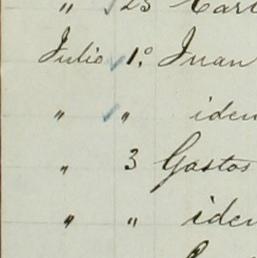 " 23
Julio 1.º Juan
" " iden
" 3 Gastos
" " iden